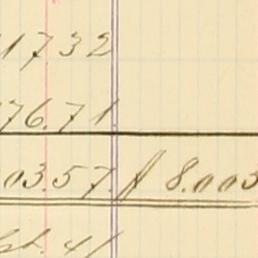 1732
76.71
03.57. $ 8.003